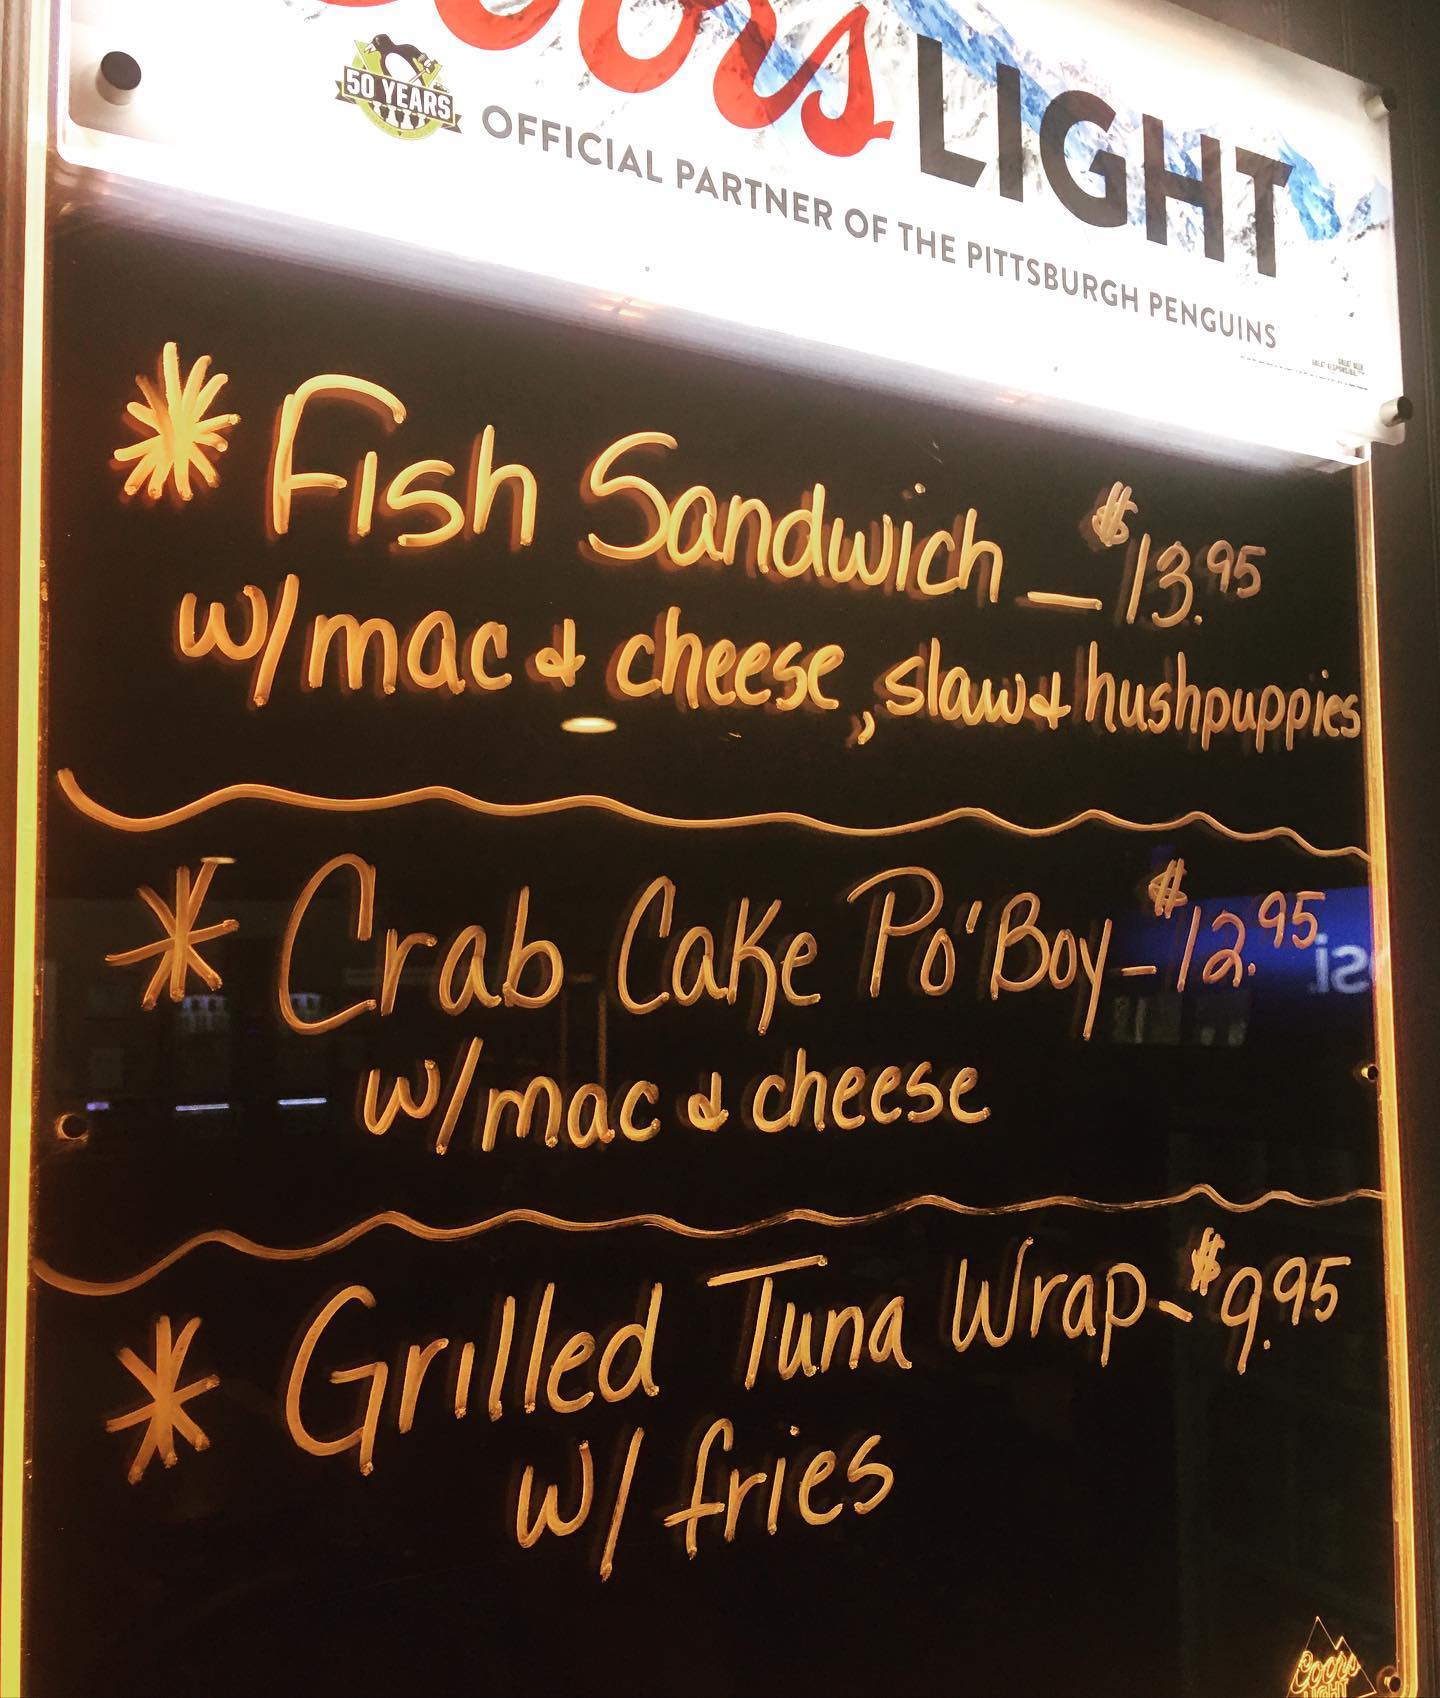 Coors LIGHT
50 YEARS
OFFICIAL PARTNER OF THE PITTSBURGH PENGUINS
* Fish Sandwich — $13.95
w/mac & cheese, slaw & hushpuppies
* Crab Cake Po'Boy - $12.95
w/mac & cheese
* Grilled Tuna Wrap - $9.95
w/ fries
Coors
LIGHT